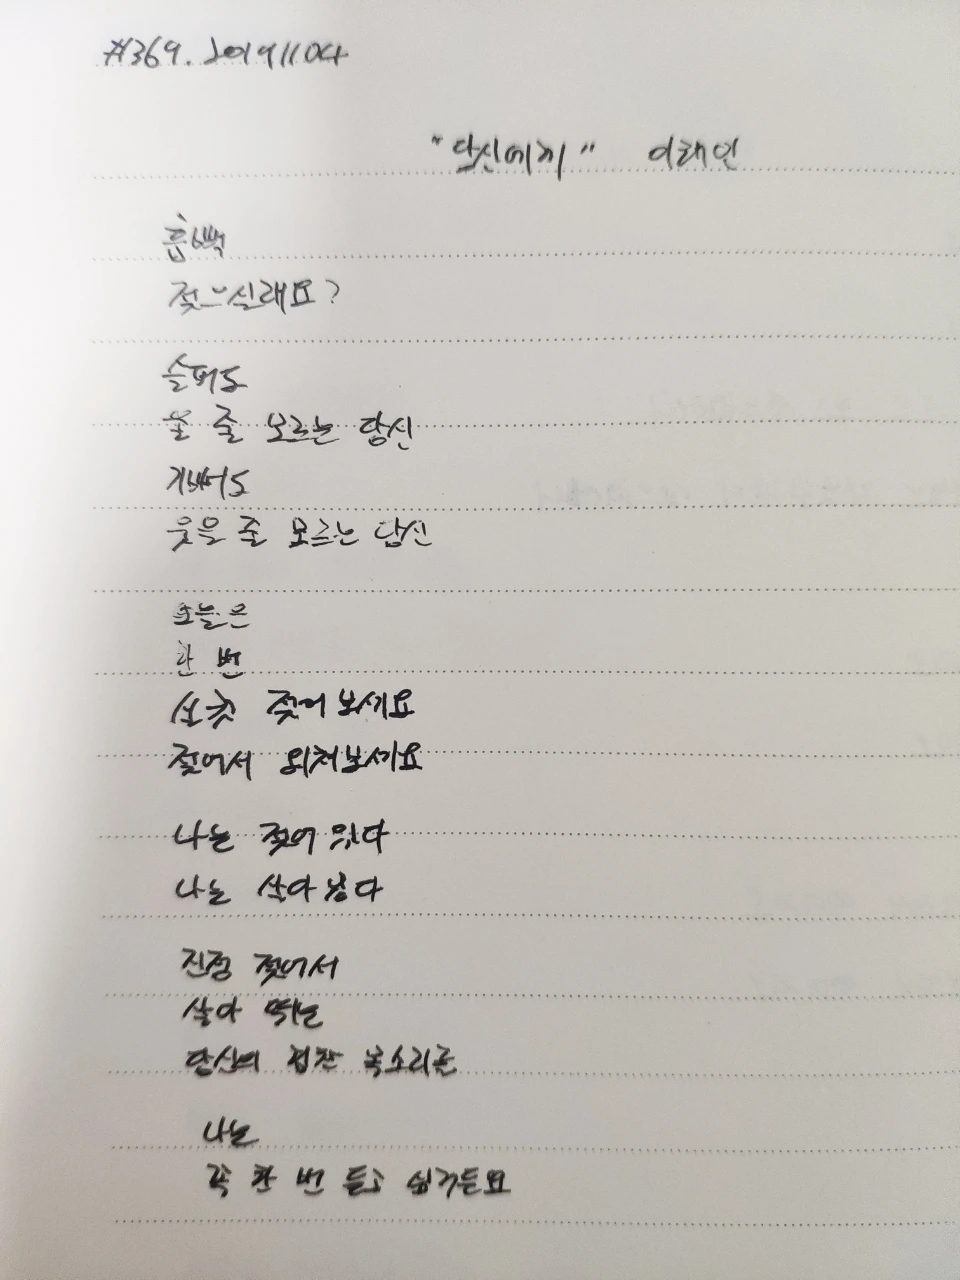 #369. 20191104
"당신에게" 이해인
흠뻑
젖으실래요?
슬퍼도
울 줄 모르는 당신
기뻐도
웃을 줄 모르는 당신
오늘은
한 번
실컷 젖어 보세요
젖어서 외쳐보세요
나는 젖어 있다
나는 살아 있다
진정 젖어서
살아 뛰는
당신의 힘찬 목소리를
나는
꼭 한 번 듣고 싶거든요